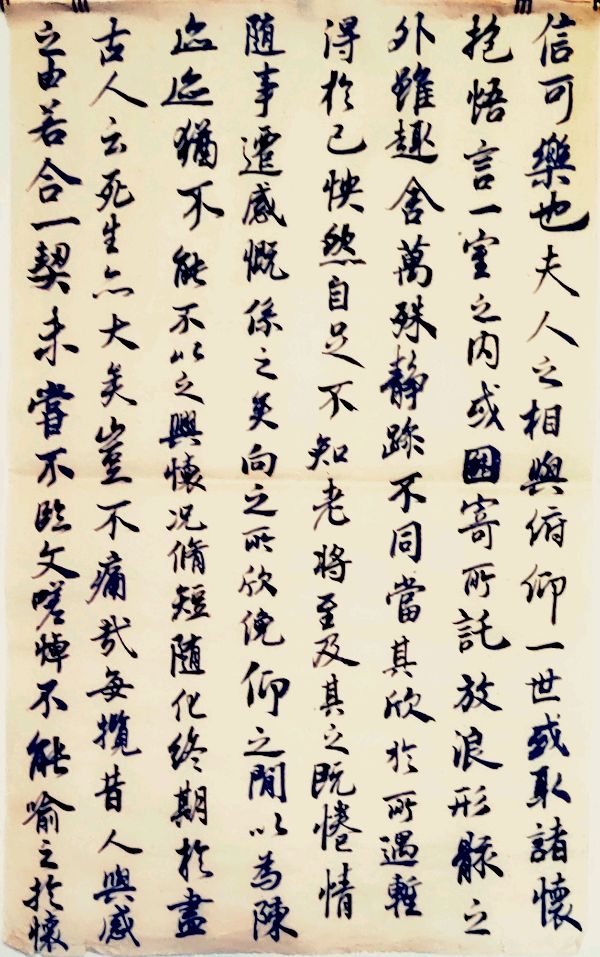 信可樂也夫人之相與俯仰一世或取諸懷
抱悟言一室之內或因寄所託放浪形骸之
外雖趣舍萬殊靜躁不同當其欣於所遇暫
得於己怏然自足不知老將至及其之既惓情
随事遷感慨係之矣向之所欣俛仰之閒以為陳
迹迹猶不能不以之興懷況脩短随化終期於盡
古人云死生亦大矣豈不痛哉每攬昔人興感
之由若合一契未嘗不臨文嗟悼不能喻之於懷